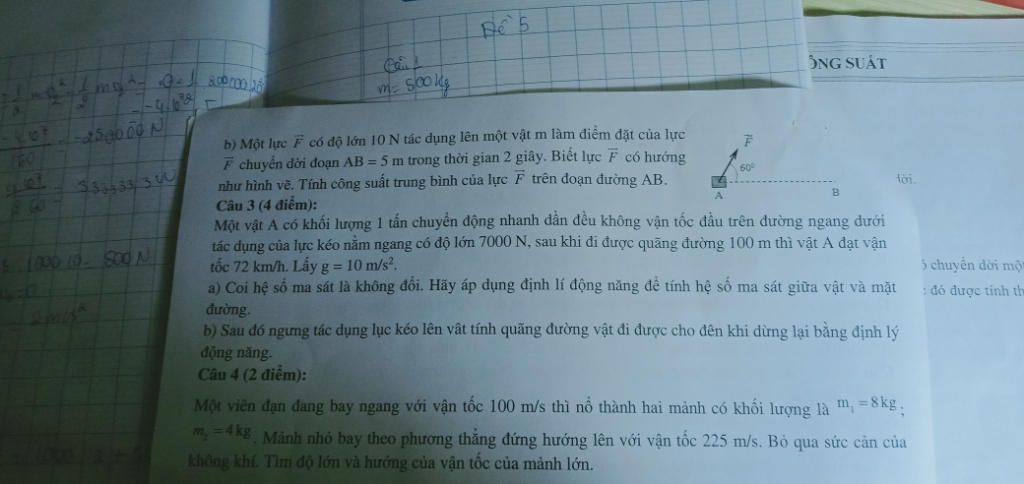 Đề 5
Câu 1
m = 500 kg
ÔNG SUẤT
b) Một lực F⃗ có độ lớn 10 N tác dụng lên một vật m làm điểm đặt của lực
F⃗ chuyển dời đoạn AB = 5 m trong thời gian 2 giây. Biết lực F⃗ có hướng
như hình vẽ. Tính công suất trung bình của lực F⃗ trên đoạn đường AB.
F⃗
60°
A B
Câu 3 (4 điểm):
Một vật A có khối lượng 1 tấn chuyển động nhanh dần đều không vận tốc đầu trên đường ngang dưới
tác dụng của lực kéo nằm ngang có độ lớn 7000 N, sau khi đi được quãng đường 100 m thì vật A đạt vận
tốc 72 km/h. Lấy g = 10 m/s².
a) Coi hệ số ma sát là không đổi. Hãy áp dụng định lí động năng để tính hệ số ma sát giữa vật và mặt
đường.
b) Sau đó ngưng tác dụng lục kéo lên vât tính quãng đường vật đi được cho đên khi dừng lại bằng định lý
động năng.
Câu 4 (2 điểm):
Một viên đạn đang bay ngang với vận tốc 100 m/s thì nổ thành hai mảnh có khối lượng là m₁ = 8 kg ;
m₂ = 4 kg . Mảnh nhỏ bay theo phương thẳng đứng hướng lên với vận tốc 225 m/s. Bỏ qua sức cản của
không khí. Tìm độ lớn và hướng của vận tốc của mảnh lớn.
lời.
chuyển dời mộ
: đó được tính th